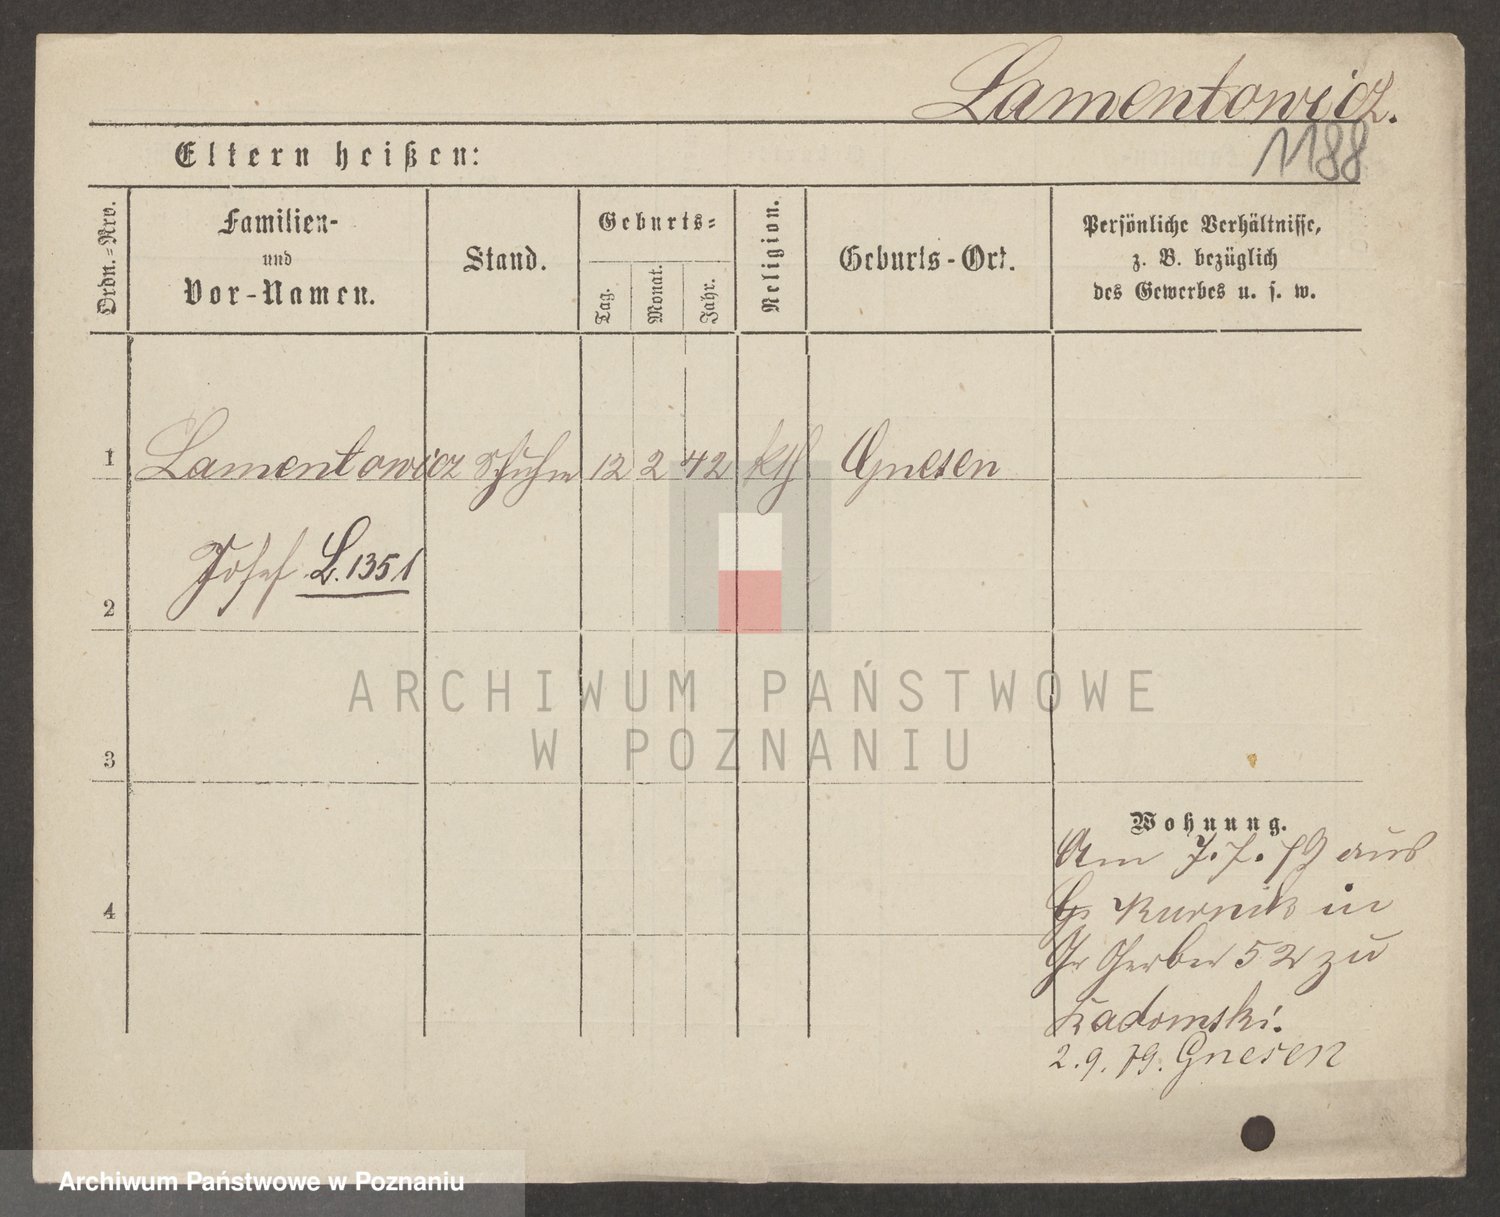 Lamentowicz.
1188
Eltern heißen:
Ordn.-Nro.
Familien-
und
Vor-Namen.
Stand.
Geburts-
Tag.
Monat.
Jahr.
Religion.
Geburts-Ort.
Persönliche Verhältnisse,
z. B. bezüglich
des Gewerbes u. s. w.
1 Lamentowicz Schuhm 12 2 42 kth Gnesen
Josef L. 1351
2
ARCHIWUM PAŃSTWOWE
W POZNANIU
3
Wohnung.
Am 7. 7. 79 aus
Kurnik in
4
Gr Gerber 52 zu
Radomski.
2. 9. 79. Gnesen
Archiwum Państwowe w Poznaniu